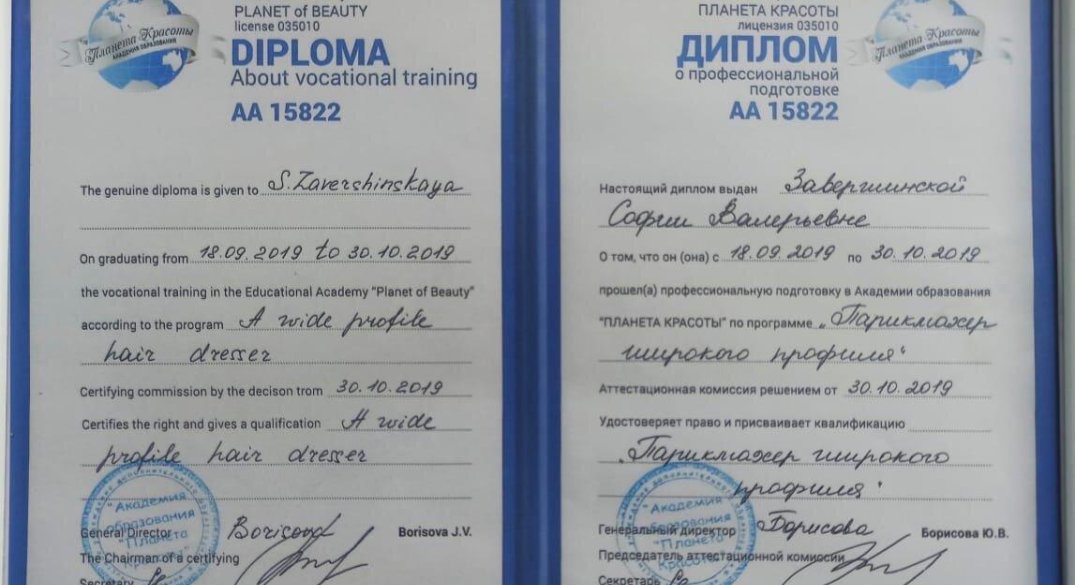 PLANET of BEAUTY
license 035010
DIPLOMA
About vocational training
AA 15822
Планета Красоты
АКАДЕМИЯ ОБРАЗОВАНИЯ
The genuine diploma is given to S. Zavershinskaya
On graduating from 18.09.2019 to 30.10.2019
the vocational training in the Educational Academy "Planet of Beauty"
according to the program A wide profile
hair dresser
Certifying commission by the decison trom 30.10.2019
Certifies the right and gives a qualification A wide
profile hair dresser
Академия
образования
"Планета
General Director Borisova Borisova J.V.
The Chairman of a certifying
Secretary
ПЛАНЕТА КРАСОТЫ
лицензия 035010
ДИПЛОМ
о профессиональной
подготовке
АА 15822
Планета Красоты
АКАДЕМИЯ ОБРАЗОВАНИЯ
Настоящий диплом выдан Завершинской
Софии Валерьевне
О том, что он (она) с 18.09.2019 по 30.10.2019
прошел(а) профессиональную подготовку в Академии образования
"ПЛАНЕТА КРАСОТЫ" по программе „Парикмахер
широкого профиля"
Аттестационная комиссия решением от 30.10.2019
Удостоверяет право и присваивает квалификацию
„Парикмахер широкого
профиля"
Академия
образования
"Планета
Красоты"
Генеральный директор Борисова Борисова Ю.В.
Председатель аттестационной комиссии
Секретарь